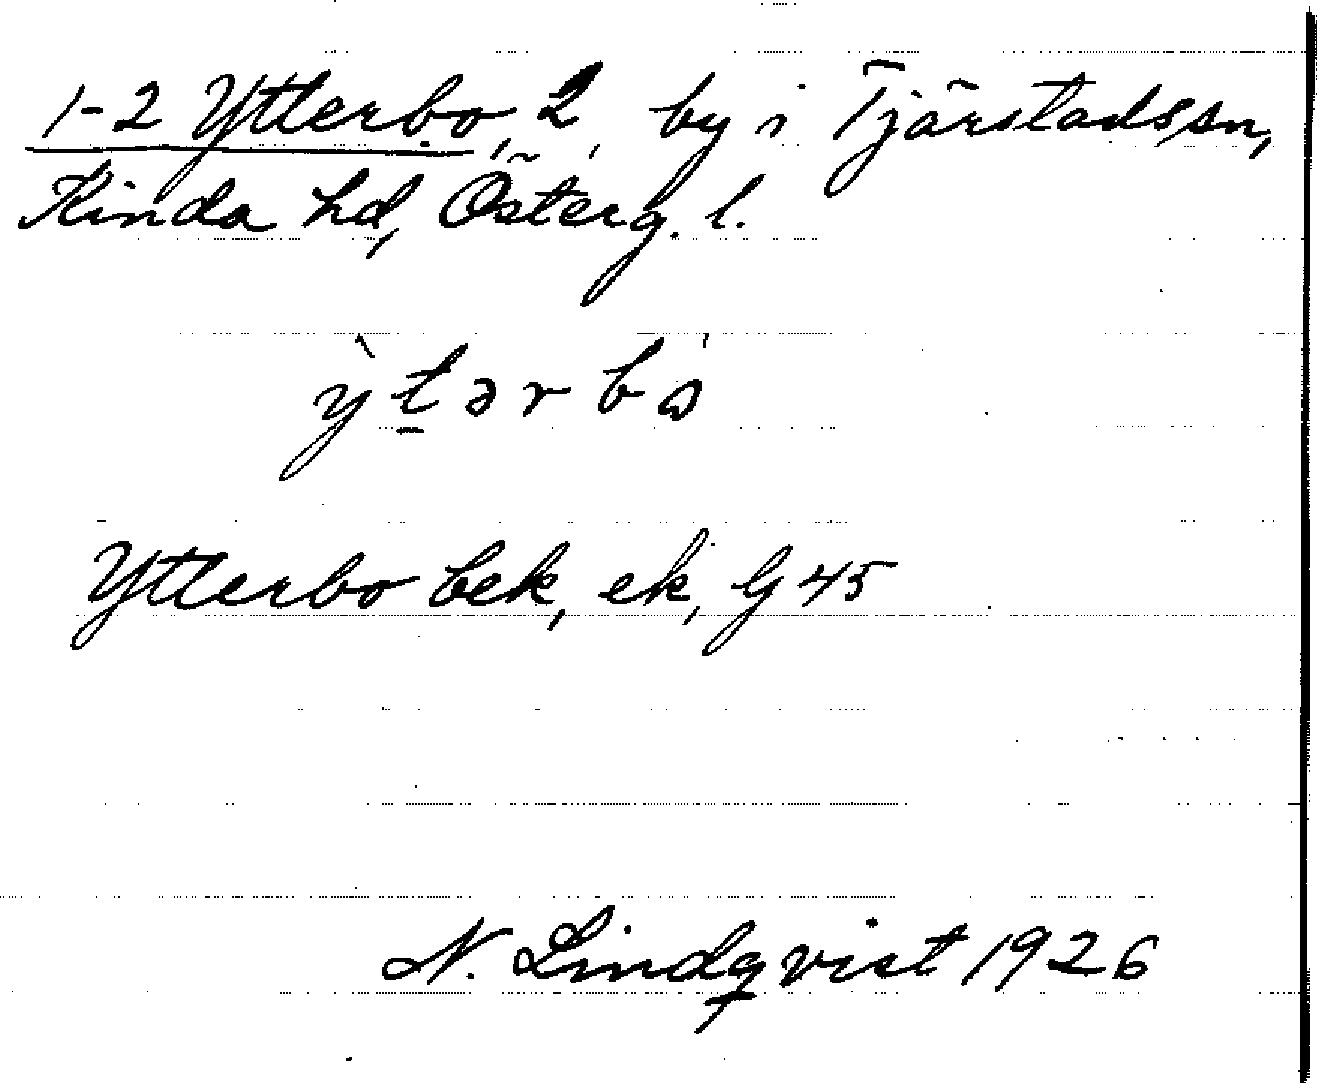 1-2 Ytterbo, 2, by i Tjärstads sn,
Kinda hd, Österg. l.
ỳt̲ərbω̍
Ytterbo bek, ek, G 45
N. Lindqvist 1926